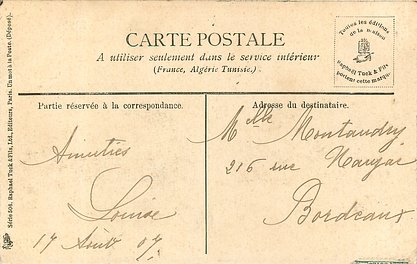 CARTE POSTALE
A utiliser seulement dans le service intérieur
(France, Algérie Tunisie.)
Toutes les éditions
de la maison
Raphaël Tuck & Fils
portent cette marque
Partie réservée à la correspondance.
Adresse du destinataire.
Amitiés
Louise
17 Août 07.
Melle Montaudry
216 rue Naujac
Bordeaux
Série 508. Raphael Tuck & Fils, Ltd., Editeurs, Paris. Un mot à la Poste. (Déposé).